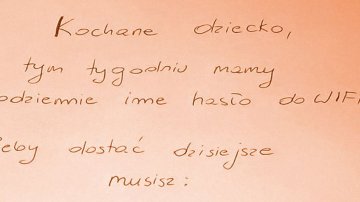 Kochane dziecko,
tym tygodniu mamy
odziennie ime hasło do WIFI
eby dostać dzisiejsze
musisz: